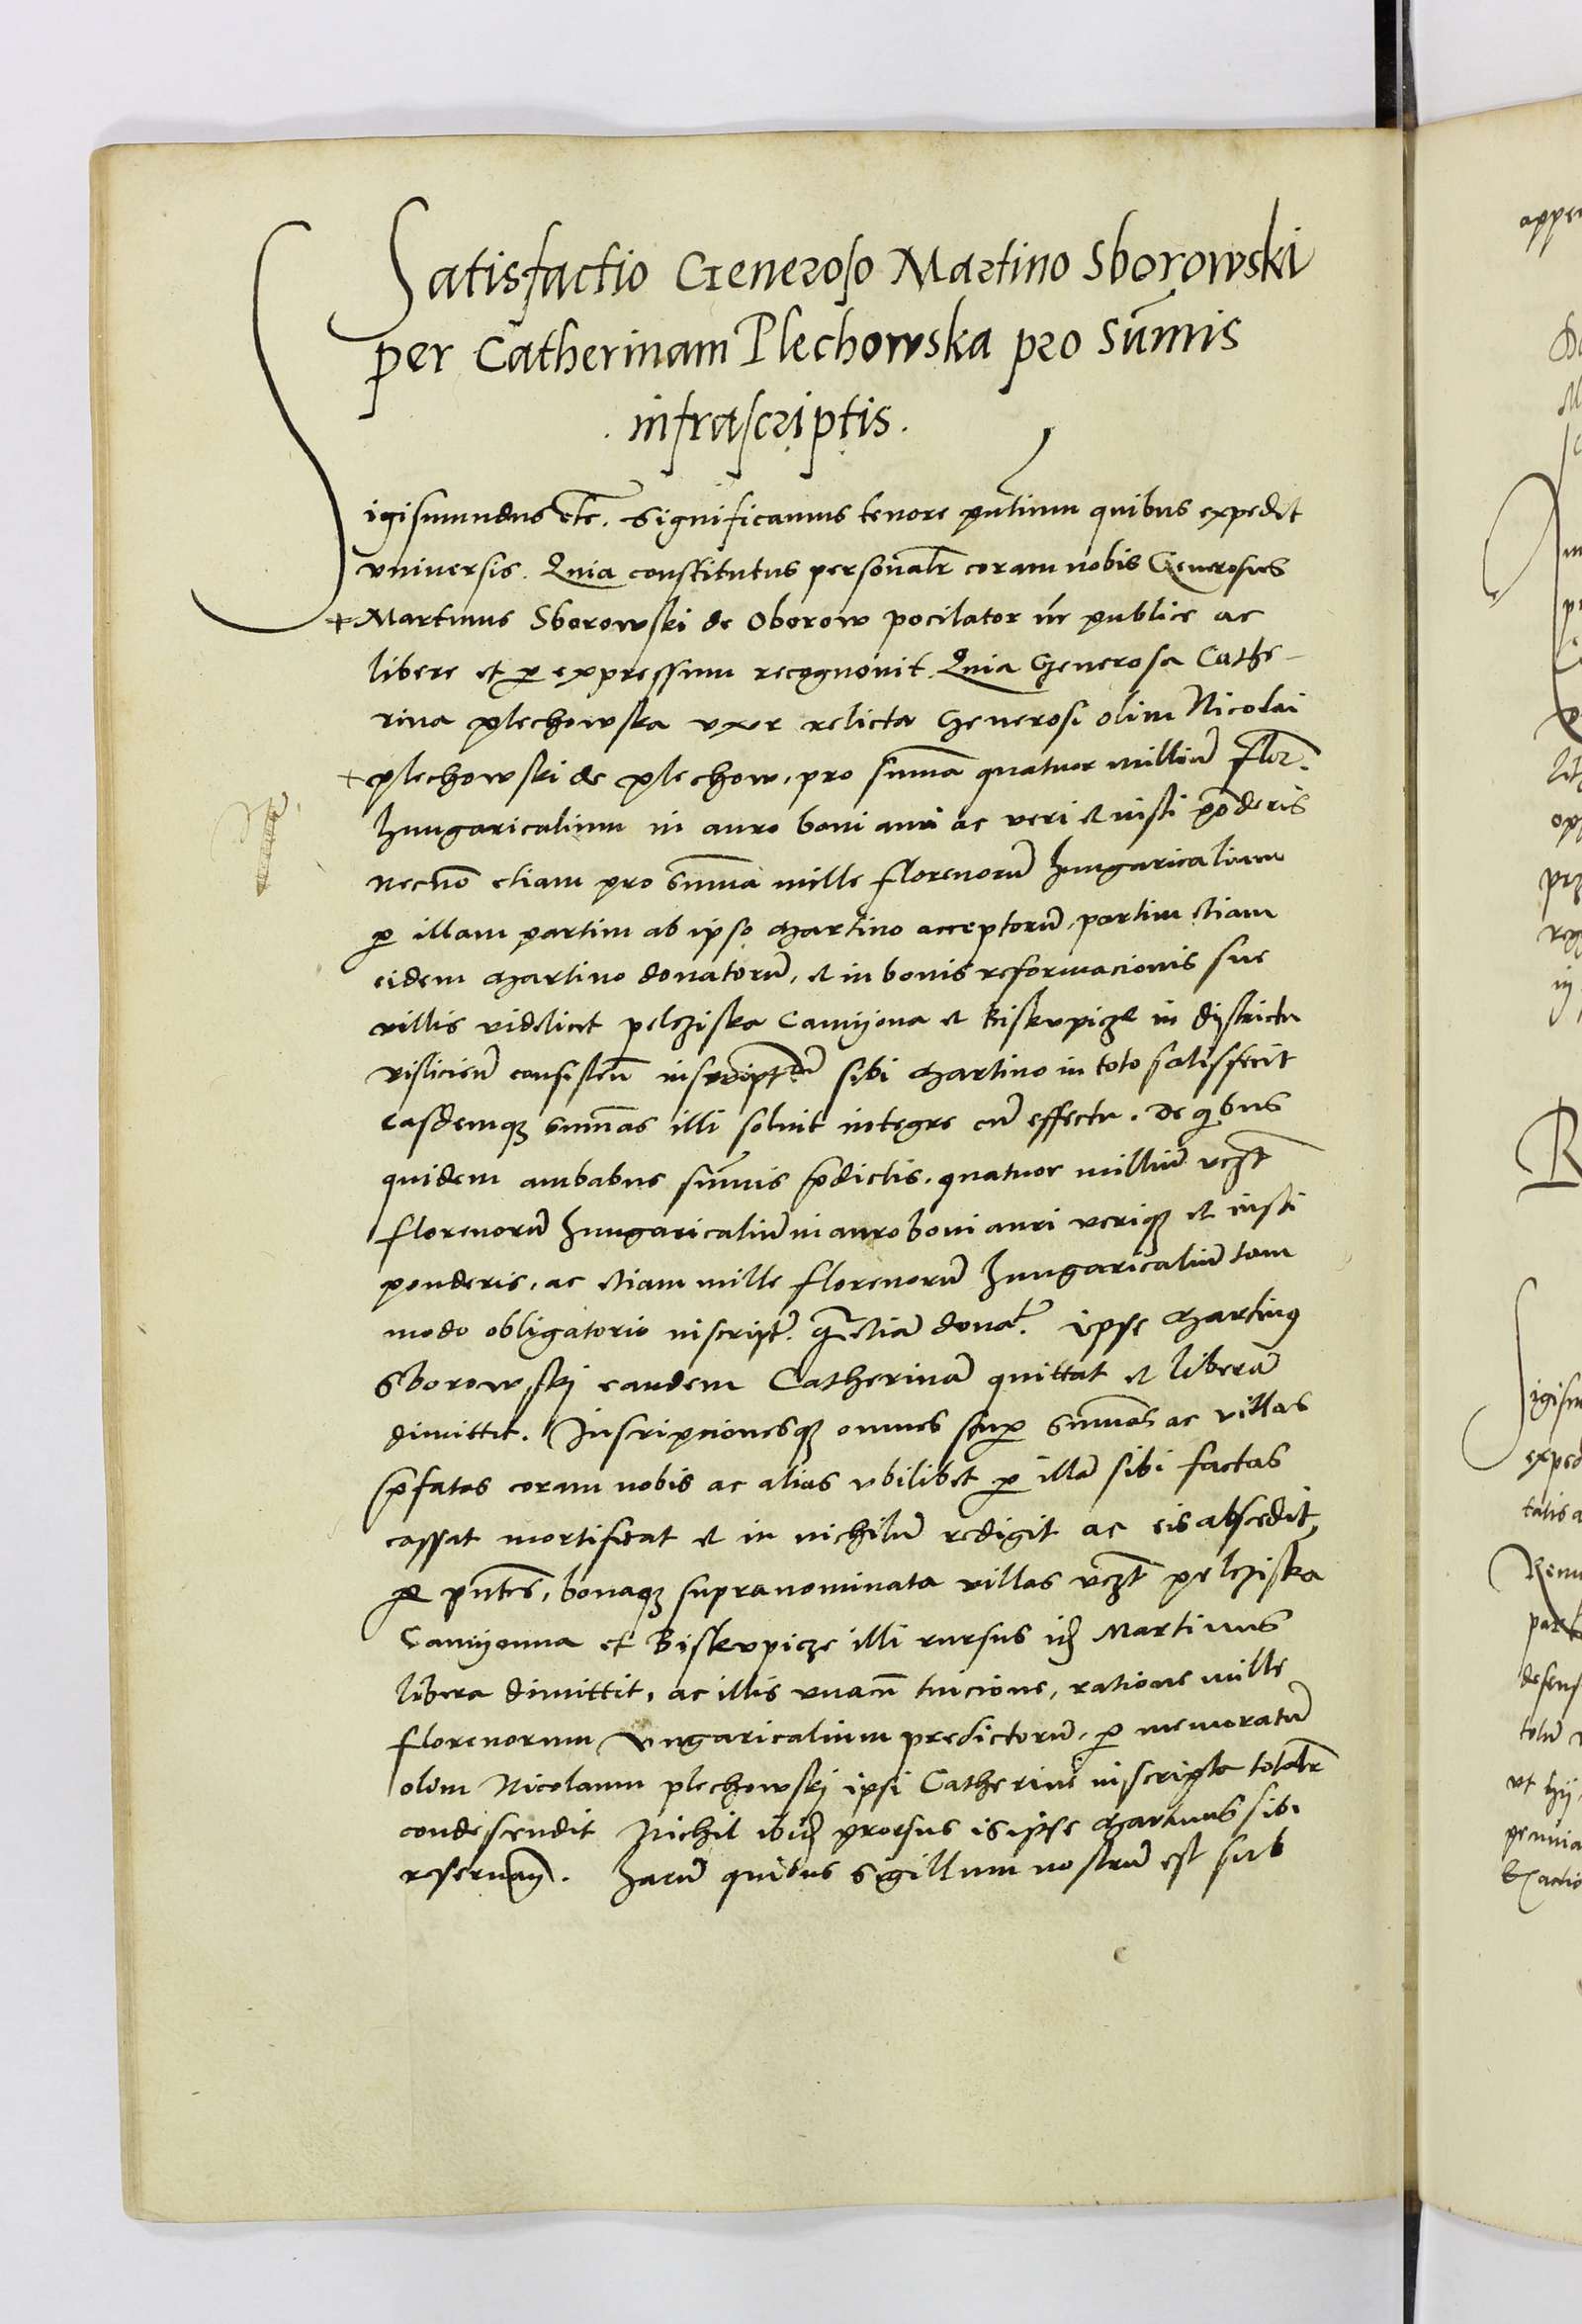 Satisfactio Generoso Martino Sborowski
per Catherinam Plechowska pro Sum̄is
. infrascriptis .
Sigismundus etc̄. Significamus tenore pn̄tium quibus expedit
vniversis. Quia constitutus personalr̄ coram nobis Generosus
+ Martinus Sborowski de Oborow pocilator nr̄ publice ac
libere et p expressum recognovit. Quia Generosa Cathe-
rina plechowska vxor relicta Generosi olim Nicolai
+ plechowski de plechow, pro sum̄a quatuor milliū flor̄.
hungaricalium in auro boni auri ac veri et iusti pōderis
necnō etiam pro sum̄a mille florenorū hungaricalium
p illam partim ab ipso Martino acceptorū, partim etiam
eidem Martino donatorū, et in bonis reformacionis sue
villis videlicet pelcziska Camyona et Biskupicze in districtu
visliciēn consistēn inscriptorū sibi Martino in toto satisfecit
easdemqz sum̄as illi soluit integre cū effectu. De qibus
quidem ambabus sum̄is p̄dictis, quatuor milliū vczt̄
florenorū hungaricaliū in auro boni auri veriqz et iusti
ponderis, ac etiam mille florenorū hungaricaliū tam
modo obligatorio inscript̄. q̄ etiā donat̄. ipse Martin9
Sborowskj eandem Catherinā quittat et liberā
dimittit. Inscripcionesqz omnes sup sum̄as ac villas
p̄fatas coram nobis ac alias vbilibet p illā sibi factas
cassat mortificat et in nichilū redigit ac eis abscedit,
p pn̄tes, bonaqz supranominata villas vczt̄ pelcziska
Camyonna et Biskupicze illi rursus idē Martinus
libera dimittit, ac illis vnacū tuicione, ratione mille
florenorum vngaricalium predictorū, p memoratū
olim Nicolaum plechowskj ipsi Catherine inscripta totalr̄
condescendit Nichil ibidē prorsus is ipse Martinus sibi
reseruan̄. Harū quibus sigillum nostrū est sub